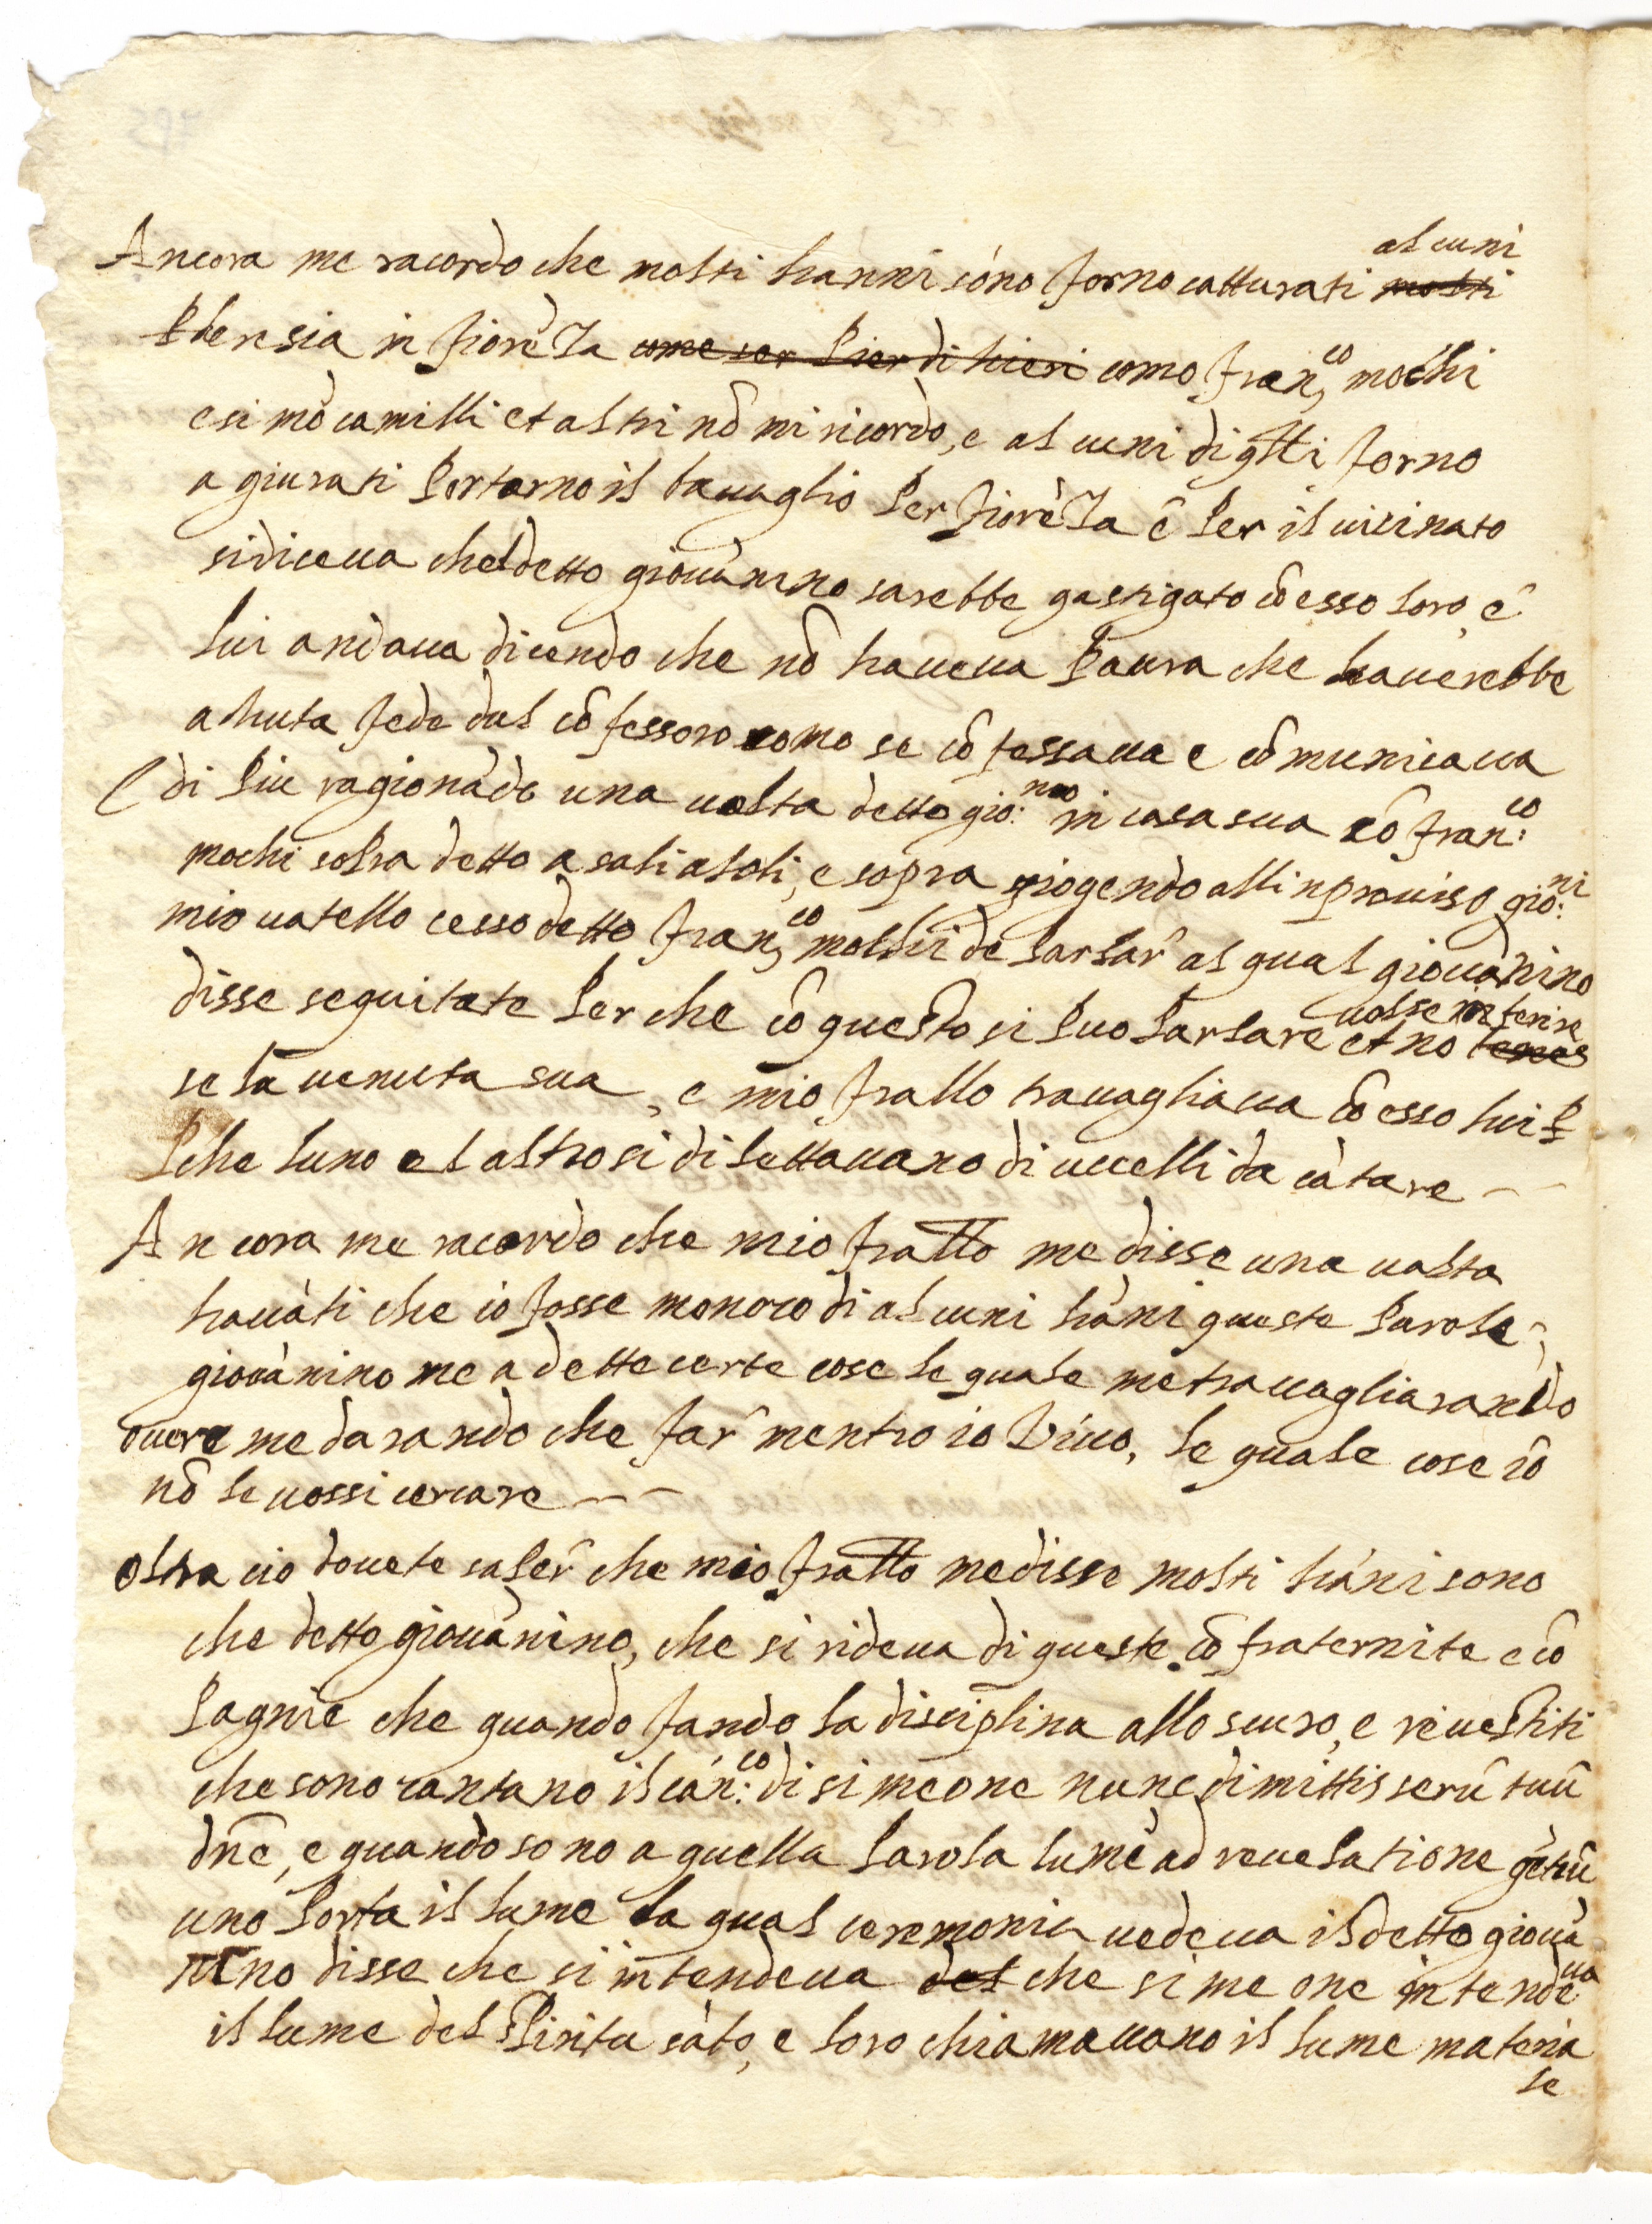 Ancora me racordo che molti hanni sóno forno catturati alcuni molti
P heresia in fiorēza come ser Pier di hieri como fran,co mochi
e simō camilli et altri nō mi ricordo, e alcuni di qlli forno
agiurati portorno il bauaglio per fiorēza e per il uicinato
si diceua cheldetto giouānino sarebbe gastigato cō esso loro, e
lui andaua dicendo che nō haueua paura che hauerebbe
a huta fede dal cō fessoro como se cō fessaua e cōmunicaua
E di piu ragionādo una uolta detto gio:no in casa sua cō fran:co
mochi sopra detto a soli a soli, e sopra giogendo allinprouiso gio:ni
mio uatello cesso detto fran,co mochi de parlar al qual giouānino
disse seguitate per che cō questo si puo parlare et no uolse inferire
se la uenuta sua, e mio frallo trauagliaua cō esso lui P
Pche luno e l altro si dilettauano di uccelli da cātare
Ancora me racordo che mio frallo me disse una uolta
hauāti che io fosse monoco di alcuni hāni queste parole,
giouānino me a dette certe cose le quale me trauagliarando
ouere me darando che far mentro io Viuo, le quale cose iō
nō le uossi cercare
oltra cio douete saper che mio frallo me disse molti hāni sono
che detto giouānino, che si rideua di queste cō fraternite e cō
pagnie che quando fando la disciplina allo scuro, e riuestiti
che sono cantano il cān:co di simeone nunc dimittis seruū tuū
dne, e quando sono a quella parola lumē ad reuelatione gētiū
uno porta il lume la qual ceremonia uedeua il detto giouā
nino disse che si intendeua del che simeone intendeua
il lume del Spiritu sāto, e loro chiamauano il lume materia
le